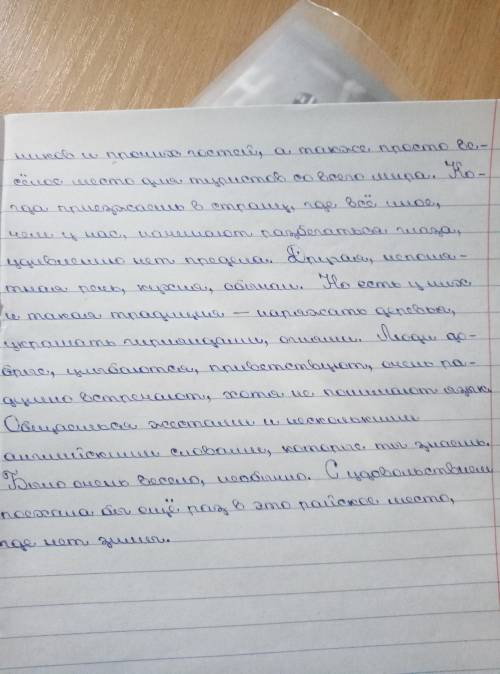 ников и прочих гостей, а также просто ве-
сёлое место для туристов со всего мира. Ко-
гда приезжаешь в страну, где всё иное,
чем у нас, начинают разбегаться глаза,
удивлению нет предела. Другая, непоня-
тная речь, кухня, обычаи. Но есть у них
и такая традиция — наряжать деревья,
украшать гирляндами, огнями. Люди до-
брые, улыбаются, приветствуют, очень ра-
душно встречают, хотя не понимают язык.
Общаешься жестами и несколькими
английскими словами, которые ты знаешь.
Было очень весело, необычно. С удовольствием
поехала бы ещё раз в это райское место,
где нет зимы.